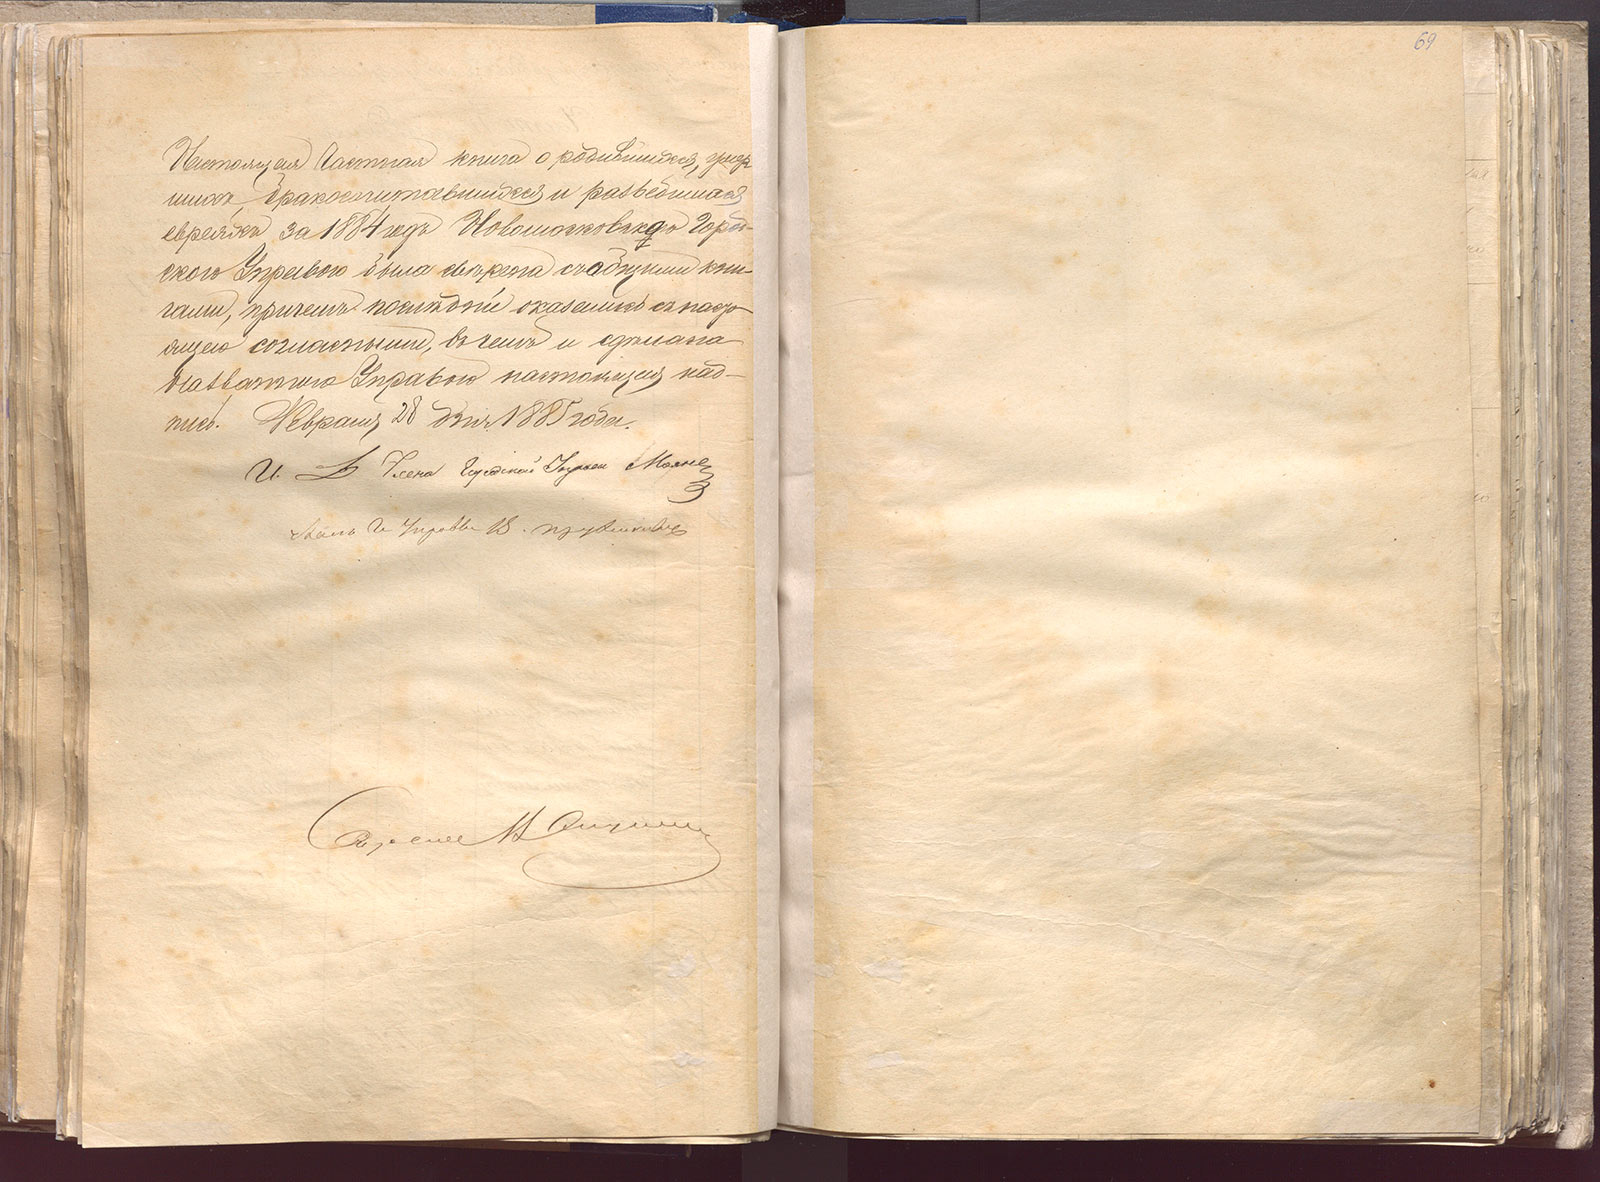 69
Настоящая частная книга о родившихся, умер-
шихъ, бракосочитавшихся и разведшихся
евреяхъ за 1884 годъ Новомосковскою Город-
скою Управою была сверена съ общими кни-
гами, причемъ последние оказались съ насто-
ящею согласными, въ чемъ и сделана
названною Управою настоящая над-
пись. Февраля 28 дня 1885 года.
И. Д. Члена Городской Управы
Управы